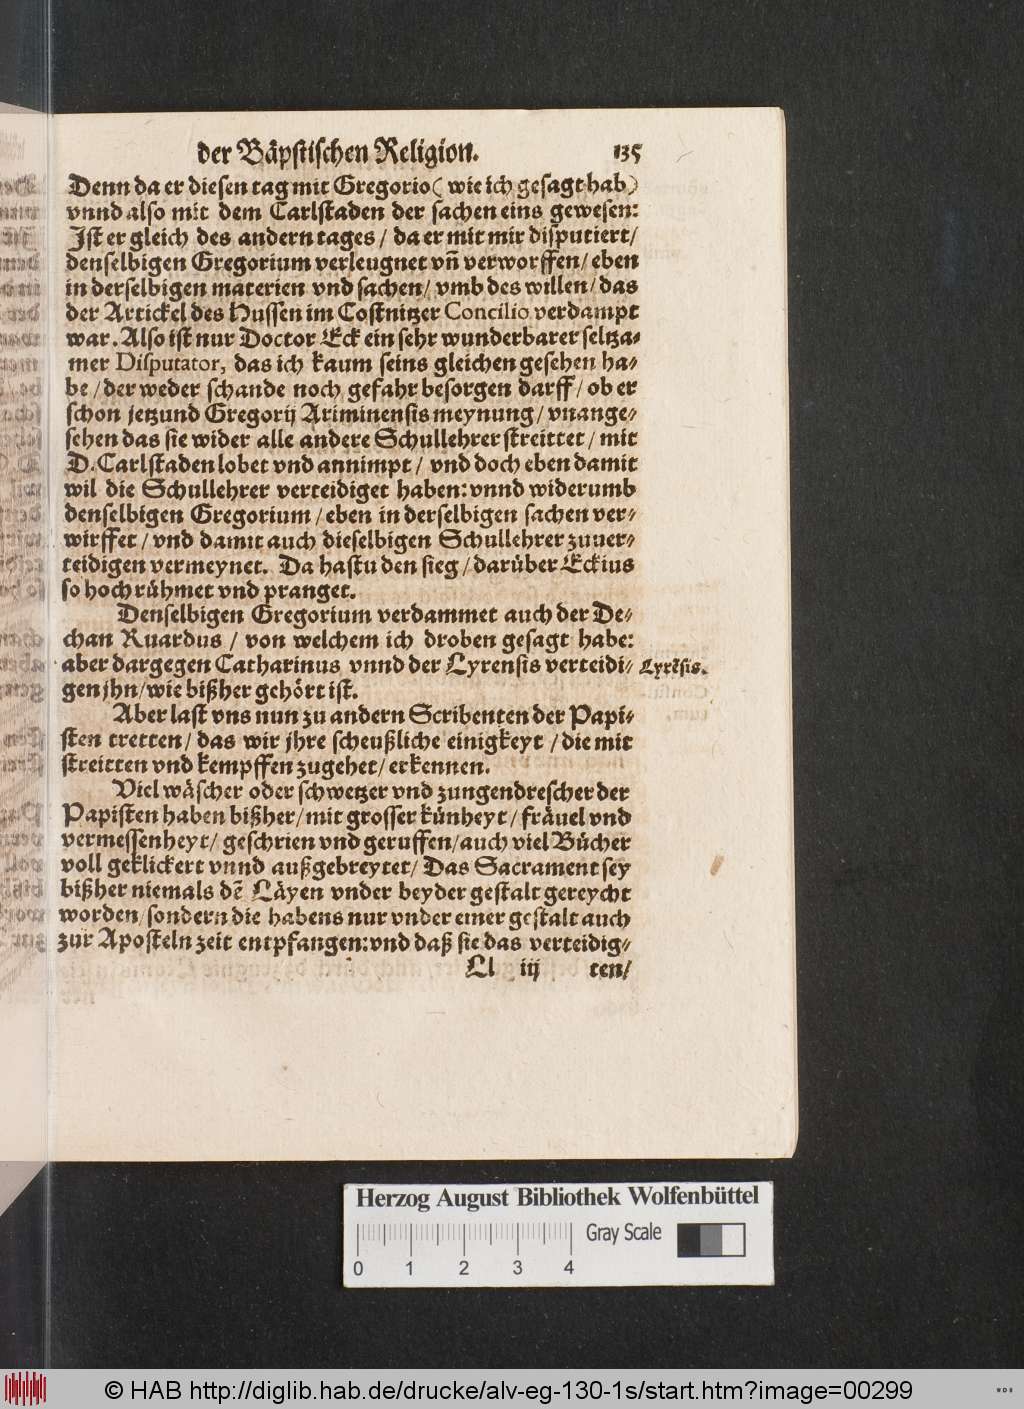 der Bäpstischen Religion. 135
Denn da er diesen tag mit Gregorio (wie ich gesagt hab)
vnnd also mit dem Carlstaden der sachen eins gewesen:
Jst er gleich des andern tages / da er mit mir disputiert /
denselbigen Gregorium verleugnet vñ verworffen / eben
in derselbigen materien vnd sachen / vmb des willen / das
der Artickel des Hussen im Costnitzer Concilio verdampt
war. Also ist nur Doctor Eck ein sehr wunderbarer seltza-
mer Disputator, das ich kaum seins gleichen gesehen ha-
be / der weder schande noch gefahr besorgen darff / ob er
schon jetzund Gregorij Ariminensis meynung / vnange-
sehen das sie wider alle andere Schullehrer streittet / mit
D. Carlstaden lobet vnd annimpt / vnd doch eben damit
wil die Schullehrer verteidiget haben: vnnd widerumb
denselbigen Gregorium / eben in derselbigen sachen ver-
wirffet / vnd damit auch dieselbigen Schullehrer zuuer-
teidigen vermeynet. Da hastu den sieg / darüber Eckius
so hoch rühmet vnd pranget.
Denselbigen Gregorium verdammet auch der De-
chan Ruardus / von welchem ich droben gesagt habe:
aber dargegen Catharinus vnnd der Lyrensis verteidi-
Lyrẽsis.
gen jhn / wie bißher gehört ist.
Aber last vns nun zu andern Scribenten der Papi-
sten tretten / das wir jhre scheußliche einigkeyt / die mit
streitten vnd kempffen zugehet / erkennen.
Viel wäscher oder schwetzer vnd zungendrescher der
Papisten haben bißher / mit grosser künheyt / fräuel vnd
vermessenheyt / geschrien vnd geruffen / auch viel Bücher
voll geklickert vnnd außgebreytet / Das Sacrament sey
bißher niemals dẽ Läyen vnder beyder gestalt gereycht
worden / sondern die habens nur vnder einer gestalt auch
zur Aposteln zeit entpfangen: vnd daß sie das verteidig-
Ll iij ten /
Herzog August Bibliothek Wolfenbüttel
Gray Scale
0 1 2 3 4
© HAB http://diglib.hab.de/drucke/alv-eg-130-1s/start.htm?image=00299